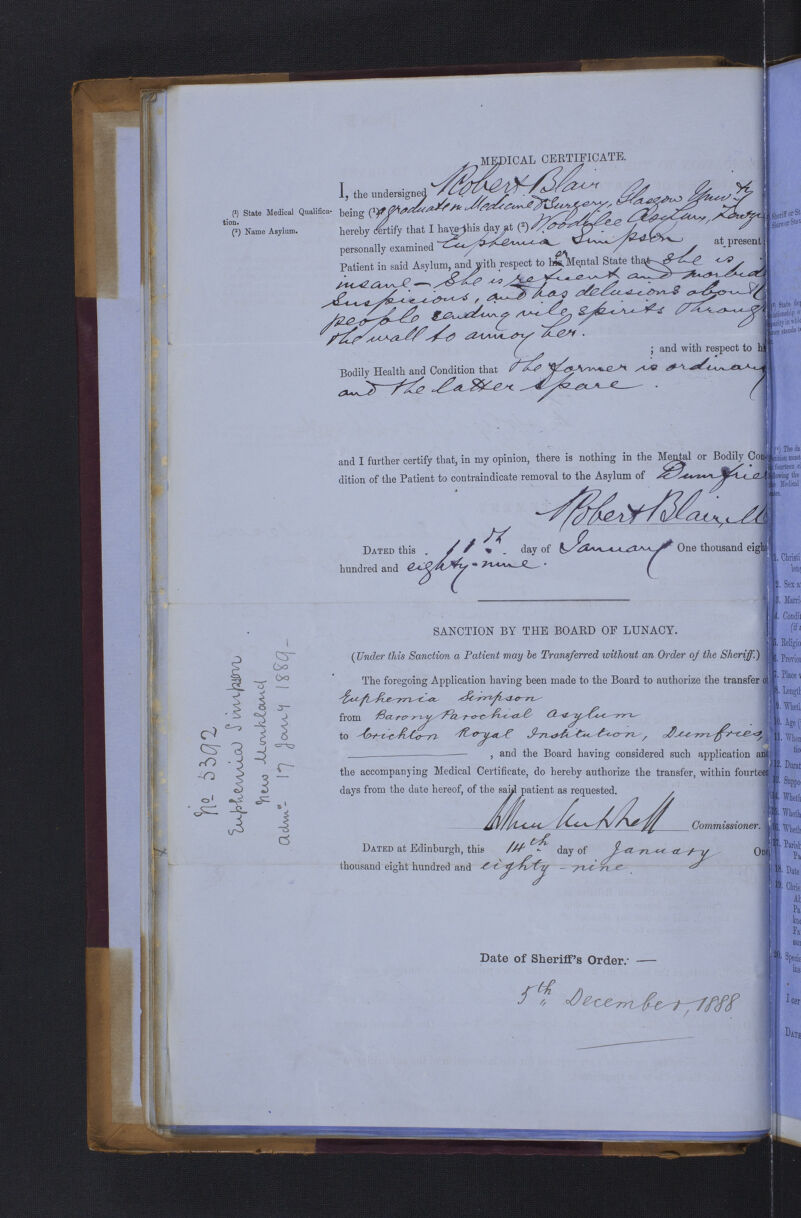 MEDICAL CERTIFICATE.
I, the undersigned Robert Blair
(¹) State Medical Qualifica-
tion.
(²) Name Asylum.
being (¹) a graduate in Medicine & Surgery, Glasgow Univty
hereby certify that I have this day at (²) Woodilee Asylum, Lenzie
personally examined Euphemia Simpson at present
Patient in said Asylum, and with respect to his er Mental State that She is
insane – She is reticent and morbid
Suspicious, and has delusions about
people sending vile spirits through
the wall to annoy her.
; and with respect to h
Bodily Health and Condition that the former is ordinary
and the latter spare.
and I further certify that, in my opinion, there is nothing in the Mental or Bodily Con
dition of the Patient to contraindicate removal to the Asylum of Dumfries
Robert Blair, M
DATED this 11th day of January One thousand eigh
hundred and eighty-nine.
SANCTION BY THE BOARD OF LUNACY.
(Under this Sanction a Patient may be Transferred without an Order of the Sheriff.)
The foregoing Application having been made to the Board to authorize the transfer o
Euphemia Simpson
from Barony Parochial Asylum
to Crichton Royal Institution, Dumfries,
, and the Board having considered such application and
the accompanying Medical Certificate, do hereby authorize the transfer, within fourteen
days from the date hereof, of the said patient as requested.
Arthur Mitchell Commissioner.
DATED at Edinburgh, this 14th day of January One
thousand eight hundred and eighty-nine.
Date of Sheriff's Order: —
5th December, 1888
No 5392
Euphemia Simpson
New Monkland
admd 17 Jany 1889-